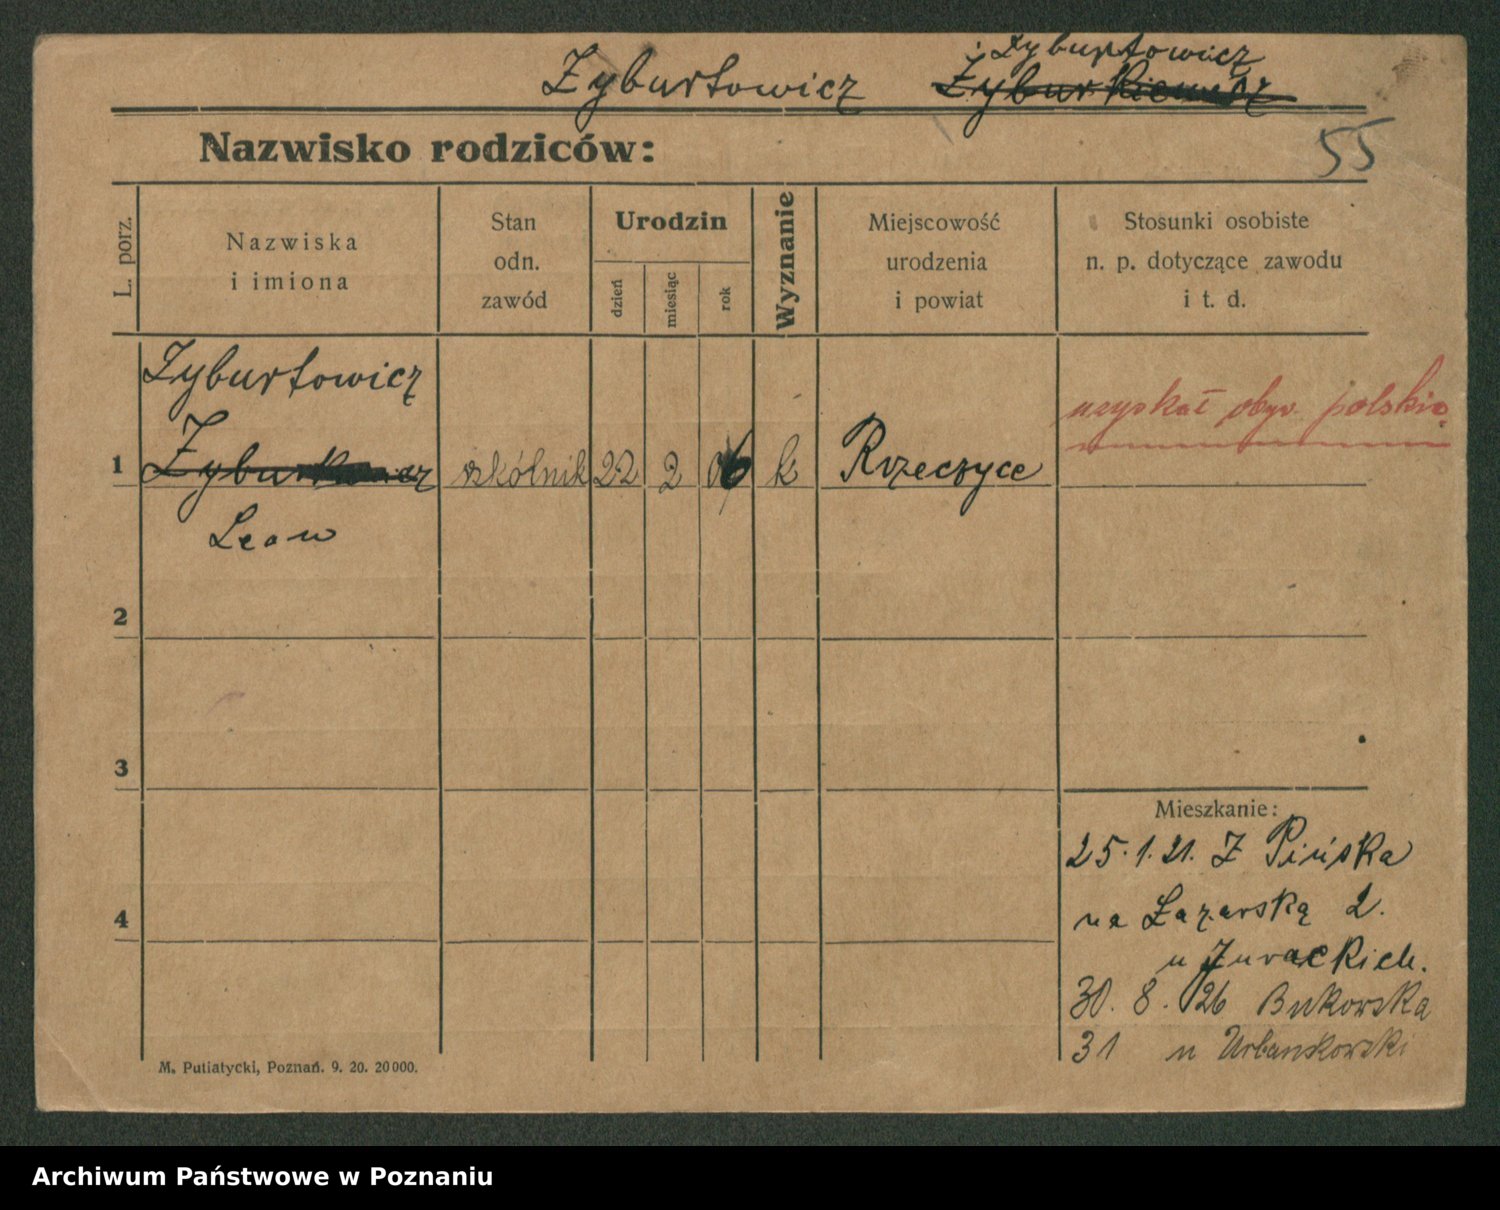 Zyburtowicz Żyburtowicz
Żyburkiewicz
55
Nazwisko rodziców:
L. porz.
Nazwiska
i imiona
Stan
odn.
zawód
Urodzin
dzień
miesiąc
rok
Wyznanie
Miejscowość
urodzenia
i powiat
Stosunki osobiste
n. p. dotyczące zawodu
i t. d.
Zyburtowicz
uzyskał obyw. polskie
1 Zyburkiewicz szkólnik 22 2 06 k Rzeczyce
Leon
2
3
Mieszkanie:
25.1.21. Z Pińska
4
na Łazarską 2.
u Żurackich.
30. 8. 26 Bukowska
31 u Urbankowski
M. Putiatycki, Poznań. 9. 20. 20000.
Archiwum Państwowe w Poznaniu